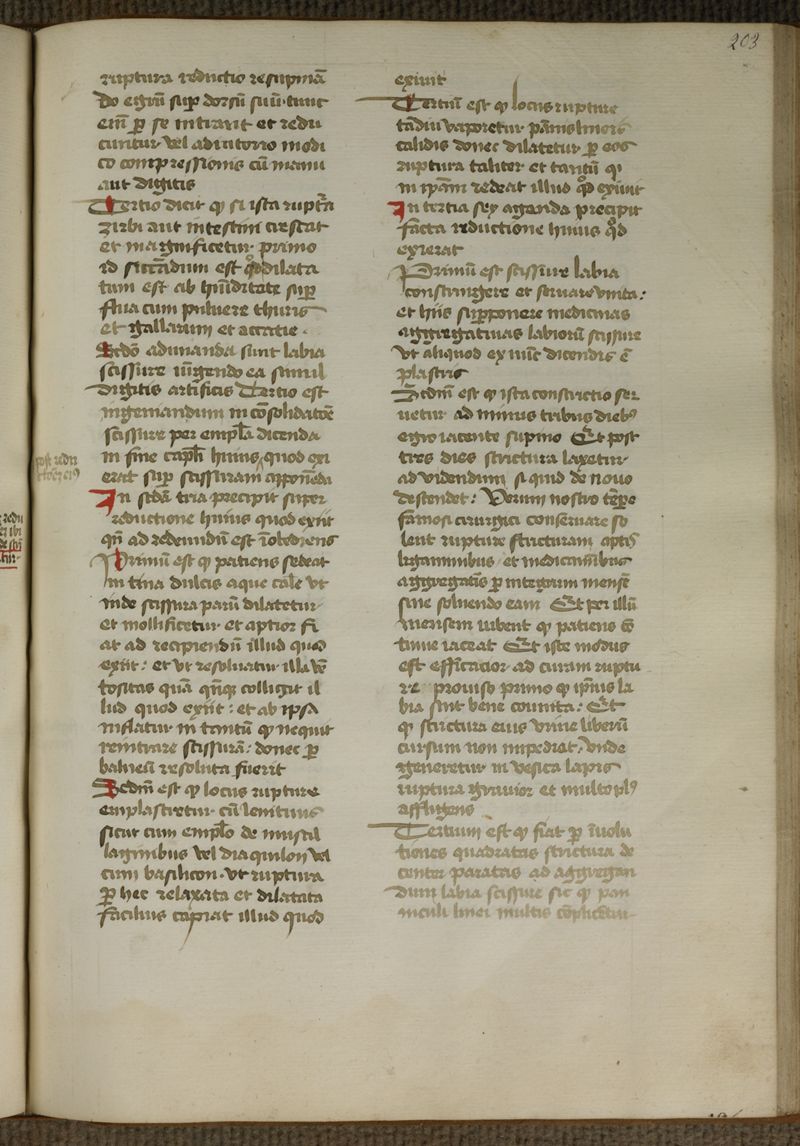 203
ruptura reductio resupinā
do egrū suꝑ dorsū suū · tunc
eni͞ ꝑ se intrauit et redu
cuntur vel adiutorio modi
co compressionis cū manu
aut digitis
Tertio dicit ꝙ si ista ruptͣa
zirbi aut intestini crescat
et magnificetur primo
id siccādum est qd̓ dilata
tum est ab hūiditate suꝑ
flua cum puluere thuris
et gallarum et accatie ·
Sedō adunanda sunt labia
scissure iūgendo ea simul
digitis artificis Tertio est
ingemandum in cōsolidatōe
scissure per emplā dicenda
in fine capli huius quod exi
erat suꝑ scissuram apponēda
In seda tria precipit super
reductione huius quod exiit
qn̄ ad redeundū est īobediens
Primū est ꝙ patiens sedeat
in tina dulcis aque cale vt
inde scissura parū dilatetur
et mollificetur et aptior fi
at ad recipiendū illud quod
exiit : et vt resoluatur illa vē
tositas quā qn̄qꝫ colligit il
lud quod exiit : et ab ipsa
inflatur in tantū ꝙ nequit
remtrare scissurā : donec ꝑ
balneū resoluta fuerit
Sedm̄ est ꝙ locus rupture
emplastretur cū lenitiuis
sicut cum emplo de muscil
laginibus vel diaquilon vel
cum basilicon · vt ruptura
ꝑ hec relaxata et dilatata
facilius capiat illud quod
exiuit
Tertiū est ꝙ locus rupture
tādiu vaporetur pānis lineis
calidis donec dilatetur ꝑ eos
ruptura taliter et tantū ꝙ
in ipām redeat illud qd̓ exiuit
In tertia sex aganda precipit
facta reductione huius qd̓
exierat
Primū est scissure labia
constringere et seruare vnita :
et hiis supponere medicinas
aggregatiuas labiorū scissure
vt aliquod ex nūc dicendis ē
plastris
Sedm̄ est ꝙ ista constrictio ser
uetur ad minus tribus diebꝰ
egro iacente supino Et post
tres dies strictura laxetur
ad videndum si quid de nouo
descendet : Verum nostro tēpore
famosi cirurgici conseruare so
lent rupture stricturam aptis
ligaminibus et medicinībus
aggregatīs ꝑ integrum mensē
sine soluendo eam Et per illū
mensem iubent ꝙ patiens cō
tinue iaceat Et iste modus
est efficatior ad curam ruptu
re prouiso primo ꝙ ipīus la
bia sint bene counita : Et
ꝙ strictura eius vrine liberū
cursum non impediat : vnde
generetur in vesica lapis
ruptura grauior et multoplꝰ
affligens
Tertium est ꝙ fiat ꝑ īuolu
tiones quadratas strictura de
center paratas ad aggregan
dum labia scissure sic ꝙ pan
niculi linei multis cōplicētur
post redu
ctōeꝫ eiꝰ